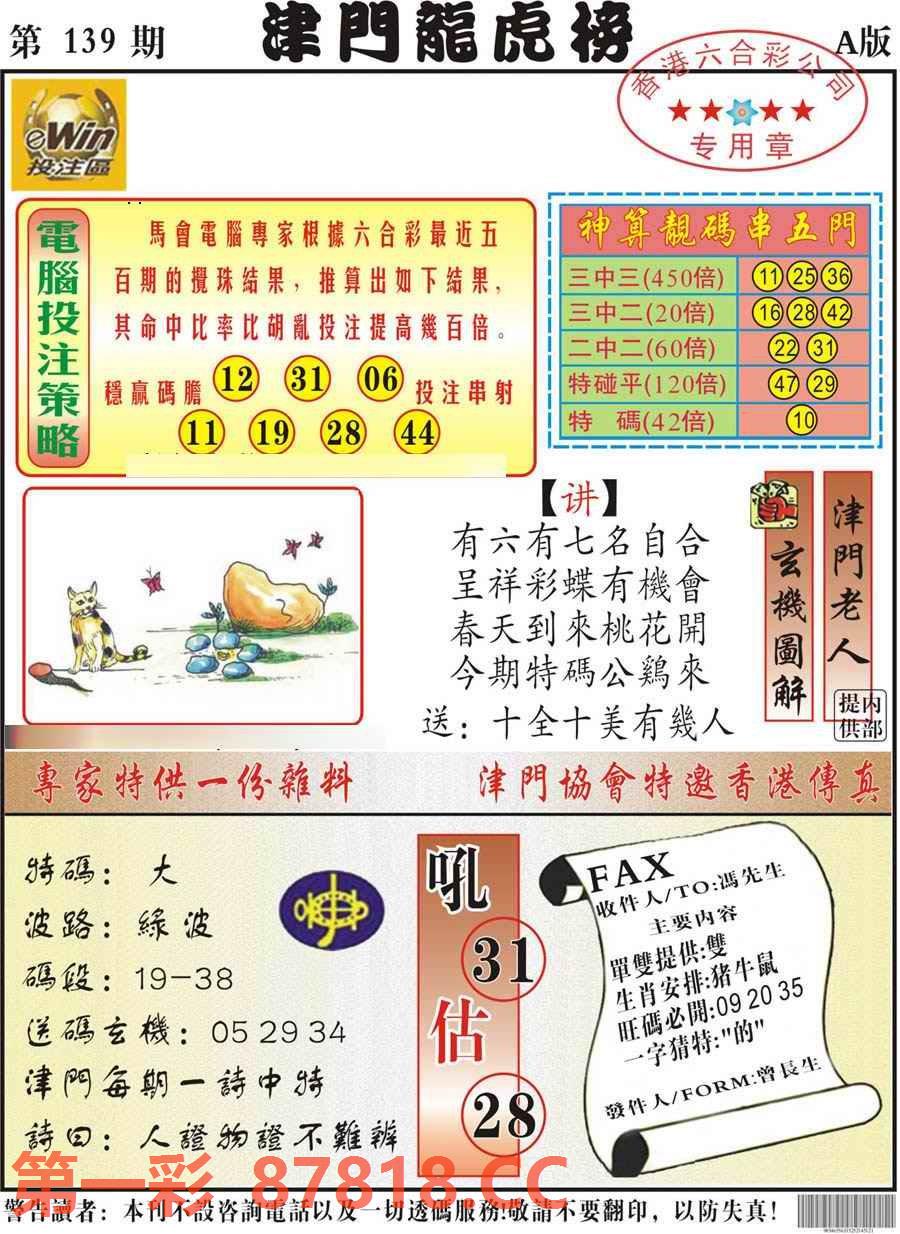 第 139 期
津門龍虎榜
A版
香港六合彩公司
专用章
eWin
投注區
電腦投注策略
馬會電腦專家根據六合彩最近五
百期的攪珠結果，推算出如下結果，
其命中比率比胡亂投注提高幾百倍。
穩贏碼膽 12 31 06 投注串射
11 19 28 44
神算靚碼串五門
三中三(450倍) 11 25 36
三中二(20倍) 16 28 42
二中二(60倍) 22 31
特碰平(120倍) 47 29
特 碼(42倍) 10
【讲】
有六有七名自合
呈祥彩蝶有機會
春天到來桃花開
今期特碼公鷄來
送：十全十美有幾人
玄機圖解
津門老人
提供
内部
專家特供一份雜料
津門協會特邀香港傳真
特碼：大
波路：綠波
碼段：19-38
送碼玄機：05 29 34
津門每期一詩中特
詩曰：人證物證不難辨
吼
31
估
28
FAX
收件人/TO:馮先生
主要内容
單雙提供:雙
生肖安排:猪牛鼠
旺碼必開:09 20 35
一字猜特:"的"
發件人/FORM:曾長生
第一彩 87818.CC
警告讀者：本刊不設咨詢電話以及一切透碼服務!敬請不要翻印，以防失真!